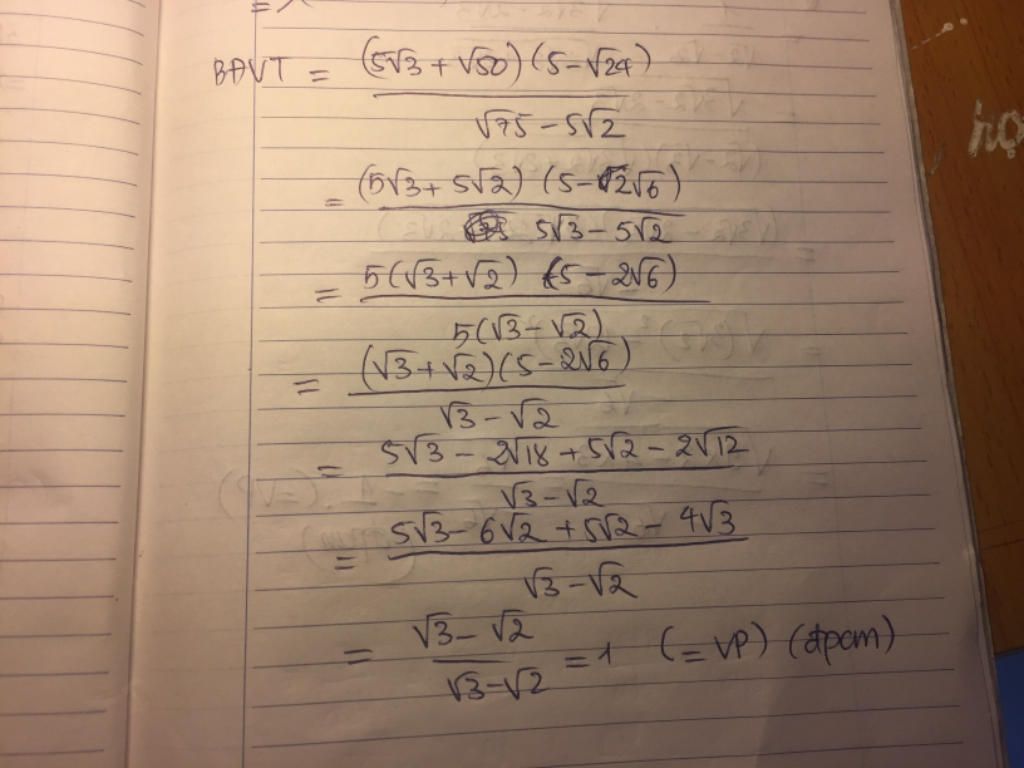 BĐVT = (5√3 + √50)(5-√24)
√75 - 5√2
= (5√3 + 5√2) (5-2√6)
5√3 - 5√2
= 5(√3+√2) (5 - 2√6)
5(√3 - √2)
= (√3+√2)(5-2√6)
√3 - √2
= 5√3 - 2√18 + 5√2 - 2√12
√3 - √2
= 5√3 - 6√2 + 5√2 - 4√3
√3 - √2
= √3 - √2
√3-√2 = 1 (= VP) (đpcm)